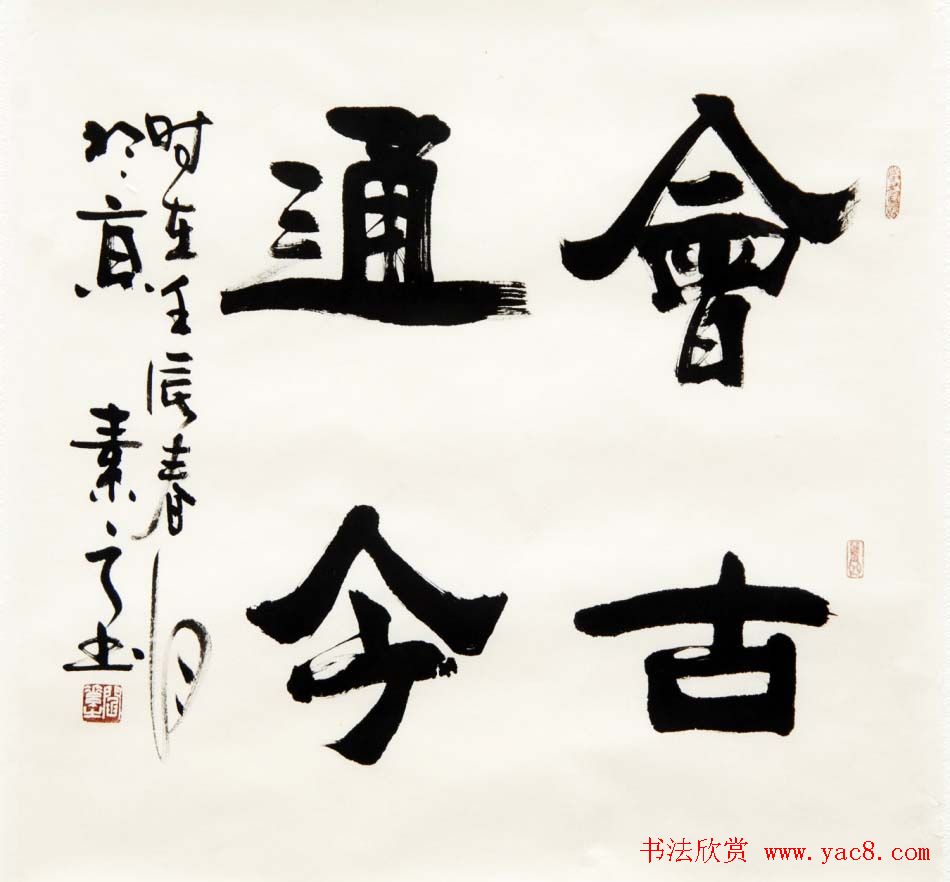 會古
通今
时在壬辰春月
於京 素之书
书法欣赏 www.yac8.com